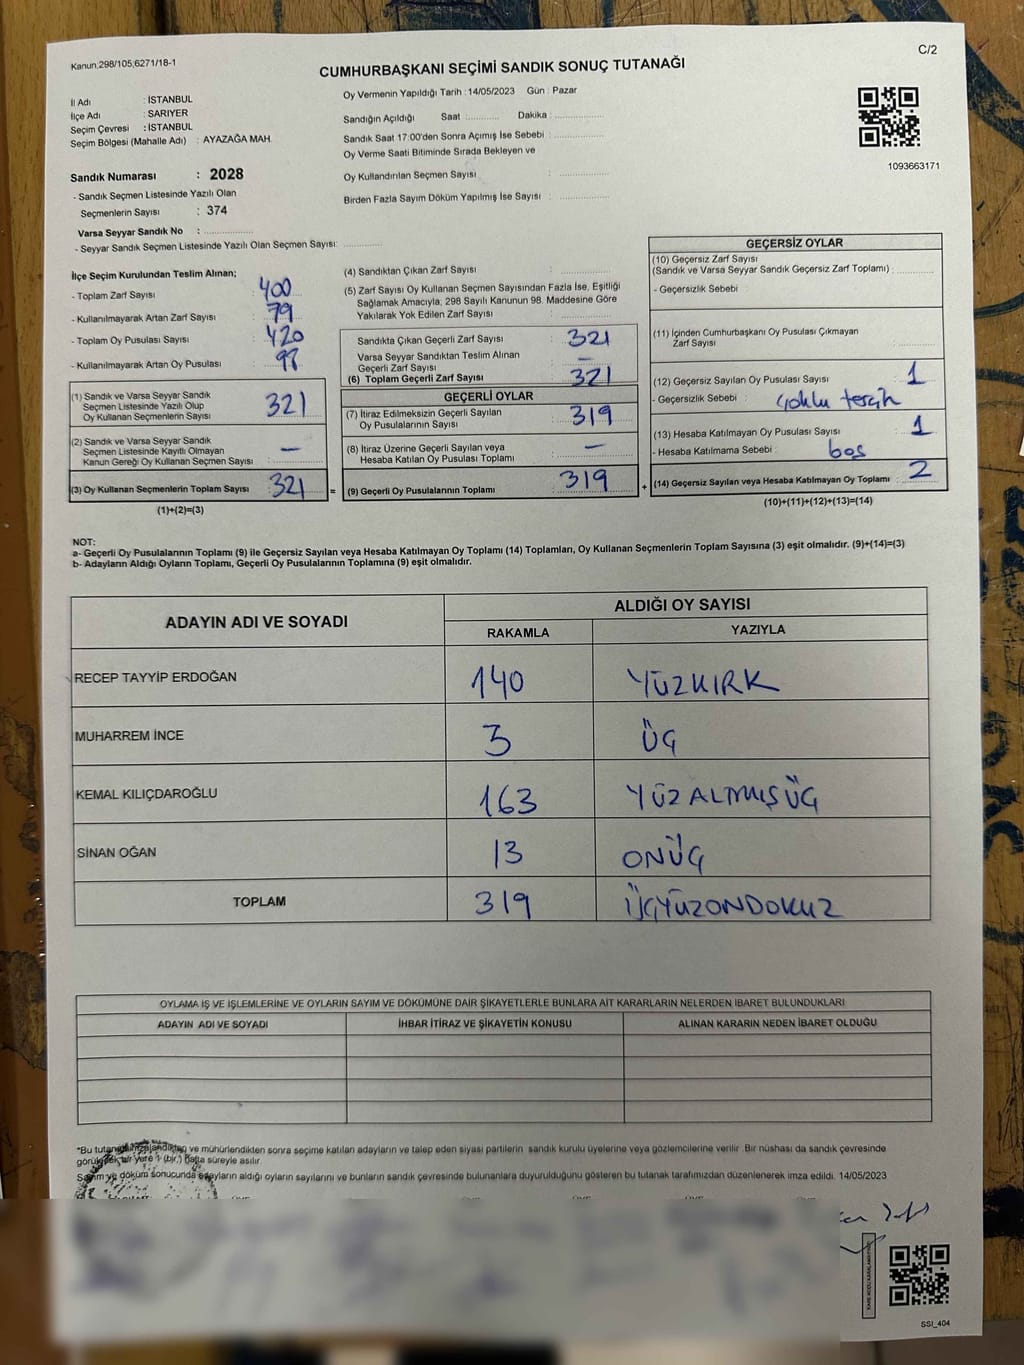 Kanun;298/105;6271/18-1
C/2
CUMHURBAŞKANI SEÇİMİ SANDIK SONUÇ TUTANAĞI
İl Adı : İSTANBUL
İlçe Adı : SARIYER
Seçim Çevresi : İSTANBUL
Seçim Bölgesi (Mahalle Adı) : AYAZAĞA MAH.
Sandık Numarası : 2028
- Sandık Seçmen Listesinde Yazılı Olan
Seçmenlerin Sayısı : 374
Varsa Seyyar Sandık No : ..............
- Seyyar Sandık Seçmen Listesinde Yazılı Olan Seçmen Sayısı: ............
Oy Vermenin Yapıldığı Tarih : 14/05/2023 Gün : Pazar
Sandığın Açıldığı Saat ........... Dakika : ................
Sandık Saat 17:00'den Sonra Açımış İse Sebebi : ................
Oy Verme Saati Bitiminde Sırada Bekleyen ve
Oy Kullandırılan Seçmen Sayısı : ................
Birden Fazla Sayım Döküm Yapılmış İse Sayısı : ................
1093663171
İlçe Seçim Kurulundan Teslim Alınan;
- Toplam Zarf Sayısı : 400
- Kullanılmayarak Artan Zarf Sayısı : 79
- Toplam Oy Pusulası Sayısı : 420
- Kullanılmayarak Artan Oy Pusulası :
(1) Sandık ve Varsa Seyyar Sandık
Seçmen Listesinde Yazılı Olup
Oy Kullanan Seçmenlerin Sayısı : 321
(2) Sandık ve Varsa Seyyar Sandık
Seçmen Listesinde Kayıtlı Olmayan
Kanun Gereği Oy Kullanan Seçmen Sayısı : —
(3) Oy Kullanan Seçmenlerin Toplam Sayısı : 321 =
(1)+(2)=(3)
(4) Sandıktan Çıkan Zarf Sayısı : ................
(5) Zarf Sayısı Oy Kullanan Seçmen Sayısından Fazla İse, Eşitliği
Sağlamak Amacıyla; 298 Sayılı Kanunun 98. Maddesine Göre
Yakılarak Yok Edilen Zarf Sayısı : ................
Sandıkta Çıkan Geçerli Zarf Sayısı : 321
Varsa Seyyar Sandıktan Teslim Alınan
Geçerli Zarf Sayısı : —
(6) Toplam Geçerli Zarf Sayısı : 321
GEÇERLİ OYLAR
(7) İtiraz Edilmeksizin Geçerli Sayılan
Oy Pusulalarının Sayısı : 319
(8) İtiraz Üzerine Geçerli Sayılan veya
Hesaba Katılan Oy Pusulası Toplamı : —
(9) Geçerli Oy Pusulalarının Toplamı : 319 +
GEÇERSİZ OYLAR
(10) Geçersiz Zarf Sayısı
(Sandık ve Varsa Seyyar Sandık Geçersiz Zarf Toplamı) : ............
- Geçersizlik Sebebi :
(11) İçinden Cumhurbaşkanı Oy Pusulası Çıkmayan
Zarf Sayısı : ............
(12) Geçersiz Sayılan Oy Pusulası Sayısı : 1
- Geçersizlik Sebebi : çoklu tercih
(13) Hesaba Katılmayan Oy Pusulası Sayısı : 1
- Hesaba Katılmama Sebebi : boş
(14) Geçersiz Sayılan veya Hesaba Katılmayan Oy Toplamı : 2
(10)+(11)+(12)+(13)=(14)
NOT:
a- Geçerli Oy Pusulalarının Toplamı (9) ile Geçersiz Sayılan veya Hesaba Katılmayan Oy Toplamı (14) Toplamları, Oy Kullanan Seçmenlerin Toplam Sayısına (3) eşit olmalıdır. (9)+(14)=(3)
b- Adayların Aldığı Oyların Toplamı, Geçerli Oy Pusulalarının Toplamına (9) eşit olmalıdır.
ADAYIN ADI VE SOYADI
ALDIĞI OY SAYISI
RAKAMLA YAZIYLA
RECEP TAYYİP ERDOĞAN 140 YÜZKIRK
MUHARREM İNCE 3 ÜÇ
KEMAL KILIÇDAROĞLU 163 YÜZALTMIŞÜÇ
SİNAN OĞAN 13 ONÜÇ
TOPLAM 319 ÜÇYÜZONDOKUZ
OYLAMA İŞ VE İŞLEMLERİNE VE OYLARIN SAYIM VE DÖKÜMÜNE DAİR ŞİKAYETLERLE BUNLARA AİT KARARLARIN NELERDEN İBARET BULUNDUKLARI
ADAYIN ADI VE SOYADI İHBAR İTİRAZ VE ŞİKAYETİN KONUSU ALINAN KARARIN NEDEN İBARET OLDUĞU
*Bu tutanak imzalandıktan ve mühürlendikten sonra seçime katılan adayların ve talep eden siyasi partilerin sandık kurulu üyelerine veya gözlemcilerine verilir. Bir nüshası da sandık çevresinde
görülecek bir yere 1 (bir) hafta süreyle asılır.
Sayım ve döküm sonucunda adayların aldığı oyların sayılarını ve bunların sandık çevresinde bulunanlara duyurulduğunu gösteren bu tutanak tarafımızdan düzenlenerek imza edildi. 14/05/2023
SSI_404